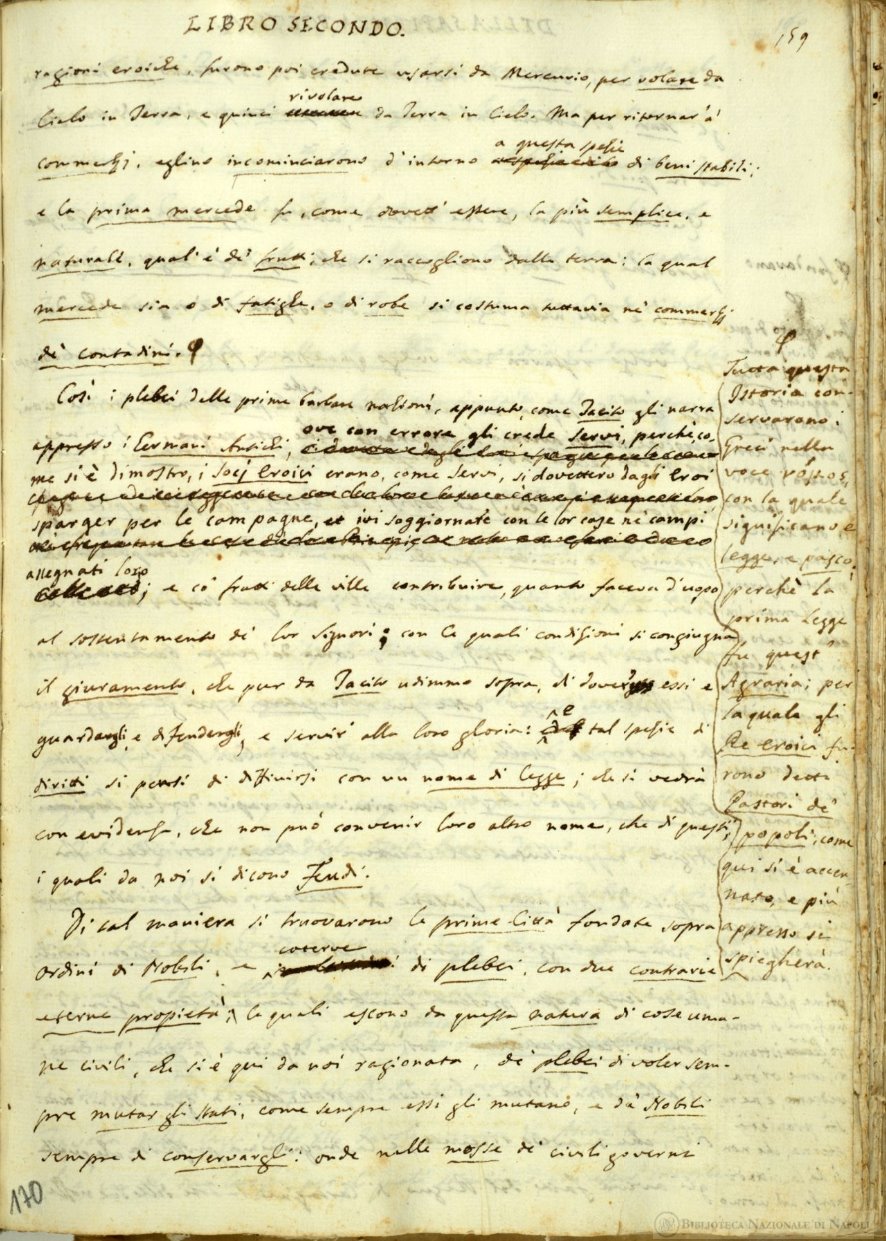 LIBRO SECONDO.
159
ragioni eroiche, furono poi credute usarsi da Mercurio, per volare da
rivolare
Cielo in Terra, e quinci da Terra in Cielo. Ma per ritornar' a'
a questa spezie
commerzj, eglino incominciarono d'intorno di beni stabili;
e la prima mercede fu, come dovett' essere, la più semplice, e
naturale, qual'è de' frutti; che si raccogliono dalla terra: la qual
mercede sia o di fatighe, o di robe si costuma tuttavia ne' commerzj
de' contadini.
Così i plebei delle prime barbare nazioni, appunto, come Tacito gli narra
ove con errore gli crede Servi, perchè, co-
appresso i Germani Antichi,
me si è dimostro, i Socj Eroici erano, come servi, si dovettero dagli Eroi
sparger per le campagne, et ivi soggiornare con le lor case ne' campi
assegnati loro
; e co' frutti delle ville contribuire, quanto faceva d'uopo
al sostentamento de' lor Signori; con le quali condizioni si congiugna
il giuramento, che pur da Tacito udimmo sopra, di dover essi e
guardargli, e difendergli, e servir' alla loro gloria: e tal spezie di
diritti si pensi di diffinirsi con un nome di legge; che si vedrà
con evidenza, che non può convenir loro altro nome, che di questi,
i quali da noi si dicono Feudi.
Di tal maniera si truovarono le prime Città fondate sopra
caterve
Ordini di Nobili, e di plebei, con due contrarie
eterne propietà, le quali escono da questa natura di cose uma-
ne civili, che si è qui da noi ragionata, de' plebei di voler sem-
pre mutar gli stati, come sempre essi gli mutano, e de' Nobili
sempre di conservargli: onde nelle mosse de' civili governi
Tutta questa
Istoria con-
servarono i
Greci nella
voce νόμος,
con la quale
significano e
legge, e pasco;
perchè la
prima Legge
fu quest'
Agraria; per
la quale gli
Re eroici fu-
rono detti
Pastori de'
popoli, come
qui si è accen-
nato, e più
appresso si
spiegherà.
170
BIBLIOTECA NAZIONALE DI NAPOLI